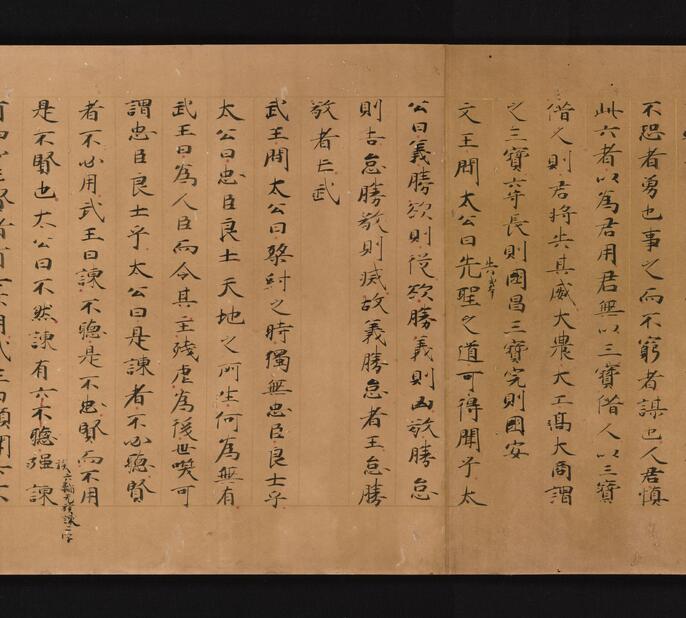 不恐者勇也事之而不窮者謀也人君慎
此六者以為君用君無以三寶借人以三寶
借人則君將失其威大農大工髙大商謂
之三寶六守長則國昌三寶完則國安
文王問太公曰先聖之道可得聞乎太
公曰義勝欲則從欲勝義則凶敬勝怠
則吉怠勝敬則滅故義勝怠者王怠勝
敬者亡武
武王問太公曰桀紂之時獨無忠臣良士乎
太公曰忠臣良士天地之所生何為無有
武王曰為人臣而令其主殘虐為後世笑可
謂忠臣良士乎太公曰是諫者不必聽賢
者不必用武王曰諫不聽是不忠賢而不用
是不賢也太公曰不然諫有六不聽強諫